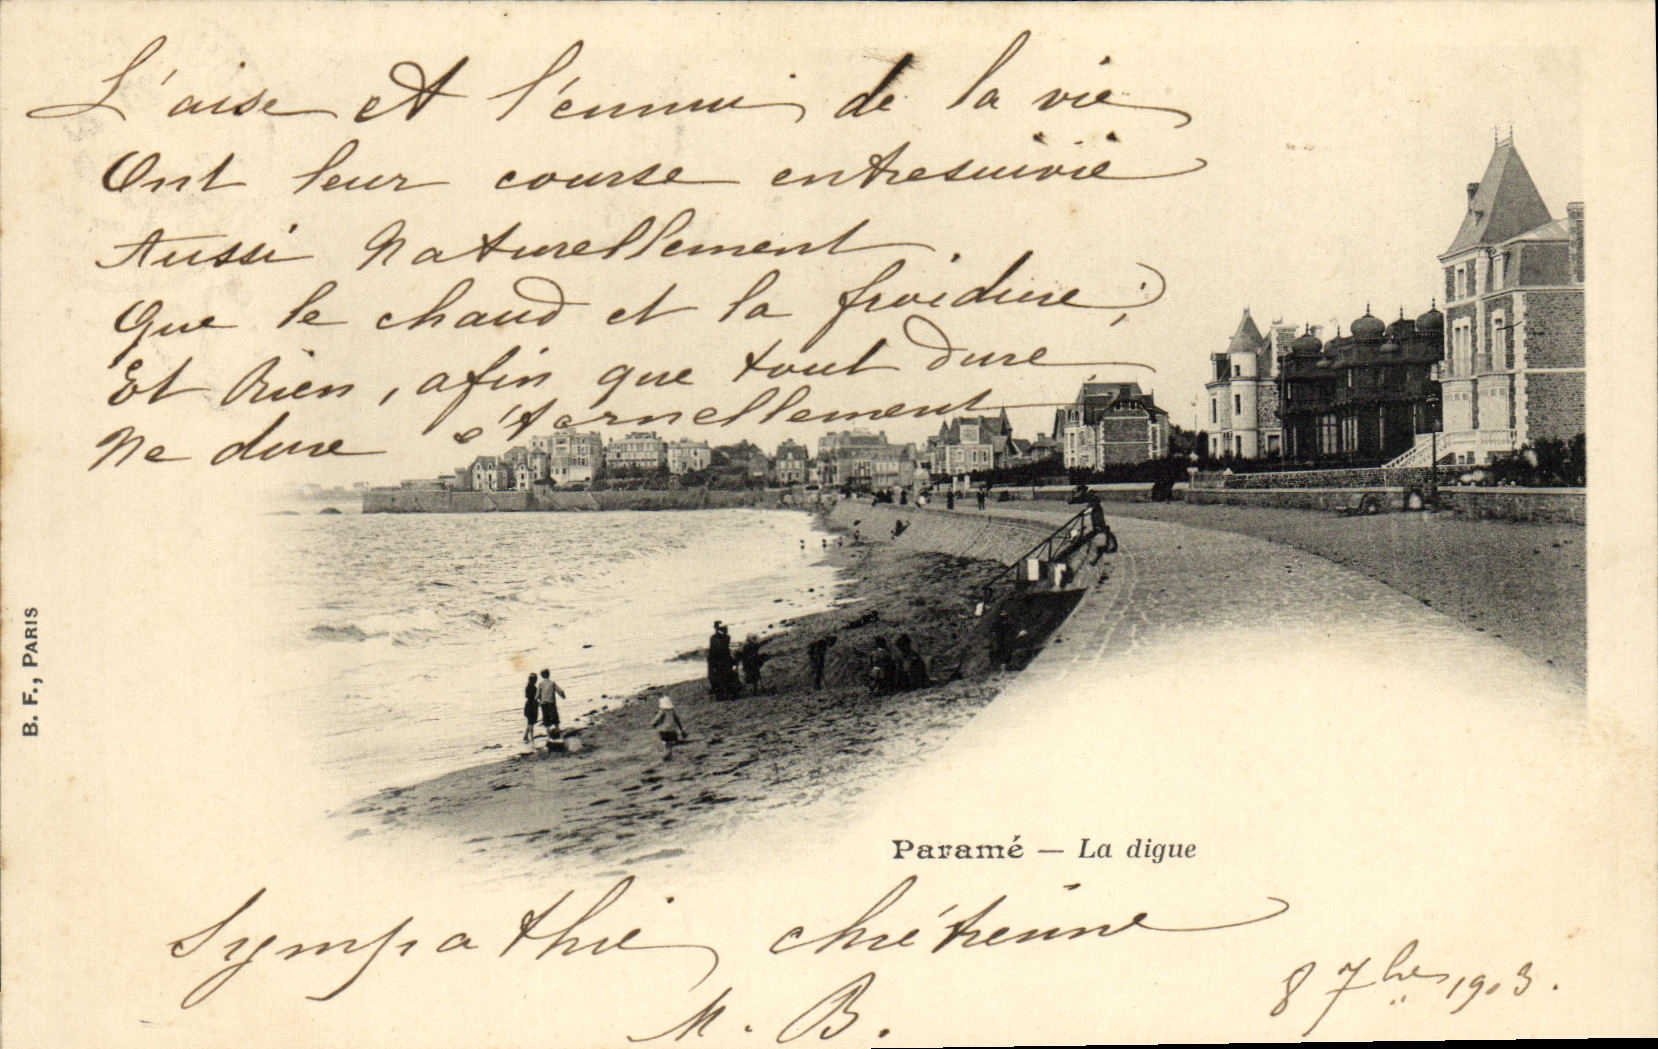 L'aise et l'ennui de la vie
Ont leur course entresuivie
Aussi Naturellement
Que le chaud et la froidure;
Et Rien, afin que tout dure
Ne dure éternellement
B. F., PARIS
Paramé — La digue
Sympathie chrétienne
M. B.
8 7bre 1903.